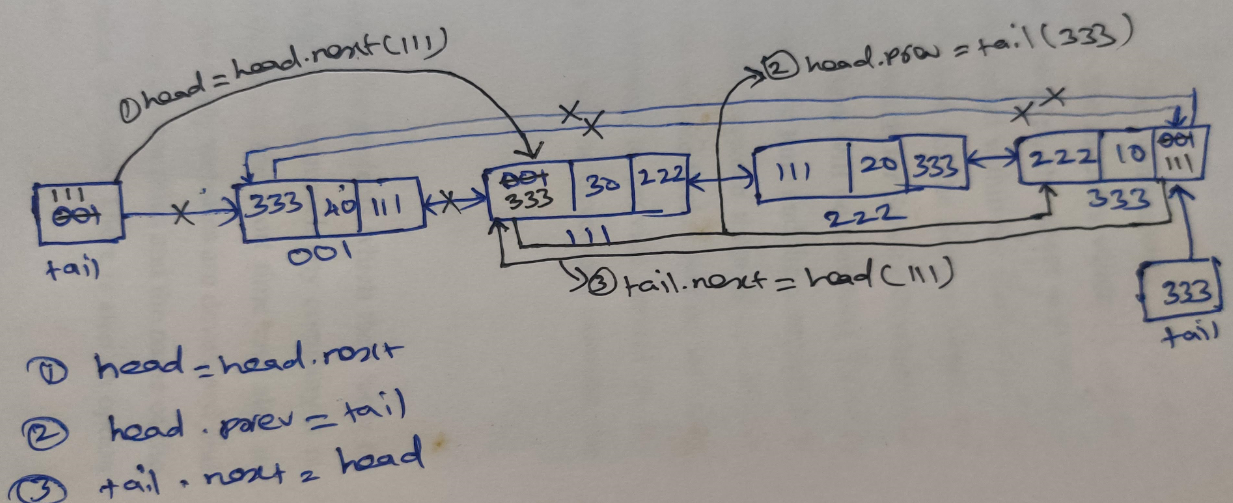 ①head=head.next(111)
②head.prev=tail(333)
111
001
tail
333 40 111
001
001
333 30 222
111
111 20 333
222
222 10 001
111
333
③tail.next=head(111)
333
tail
① head=head.next
② head.prev=tail
③ tail.next=head